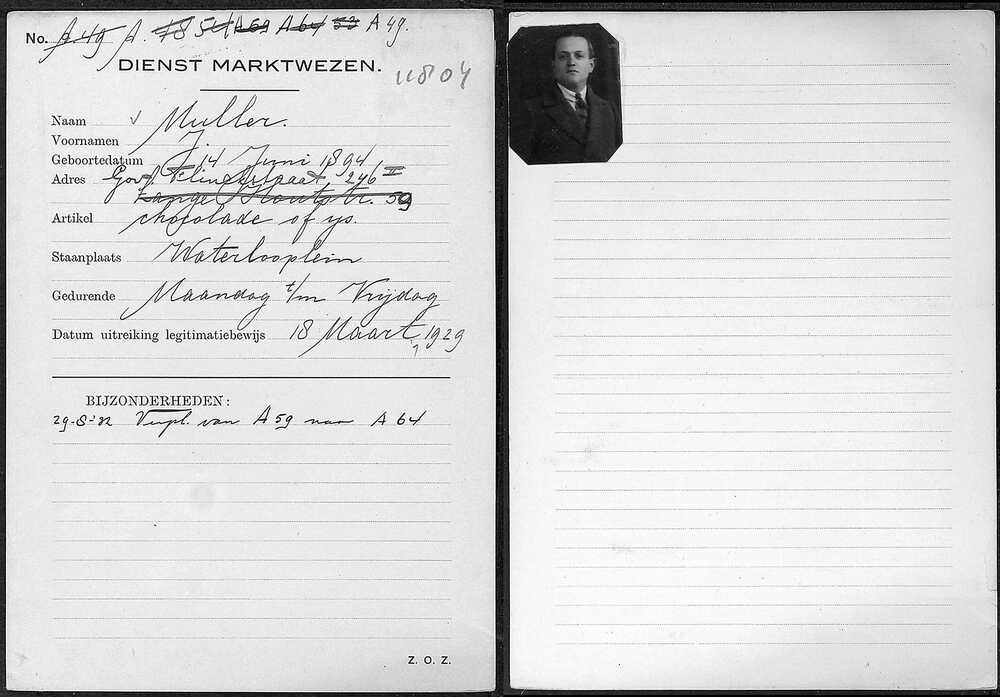 No. A. 49 A. 78 54 A 59 A 64 53 A 49.
DIENST MARKTWEZEN.
11804
Naam v Muller.
Voornamen J.
Geboortedatum 14 Juni 1894
Adres Gov. Flinckstraat 246 II
Lange Houtstr. 59
Artikel chocolade of ijs.
Staanplaats Waterlooplein
Gedurende Maandag t/m Vrijdag
Datum uitreiking legitimatiebewijs 18 Maart 1929
BIJZONDERHEDEN:
29-8-32 Verpl. van A 59 naar A 64
Z. O. Z.